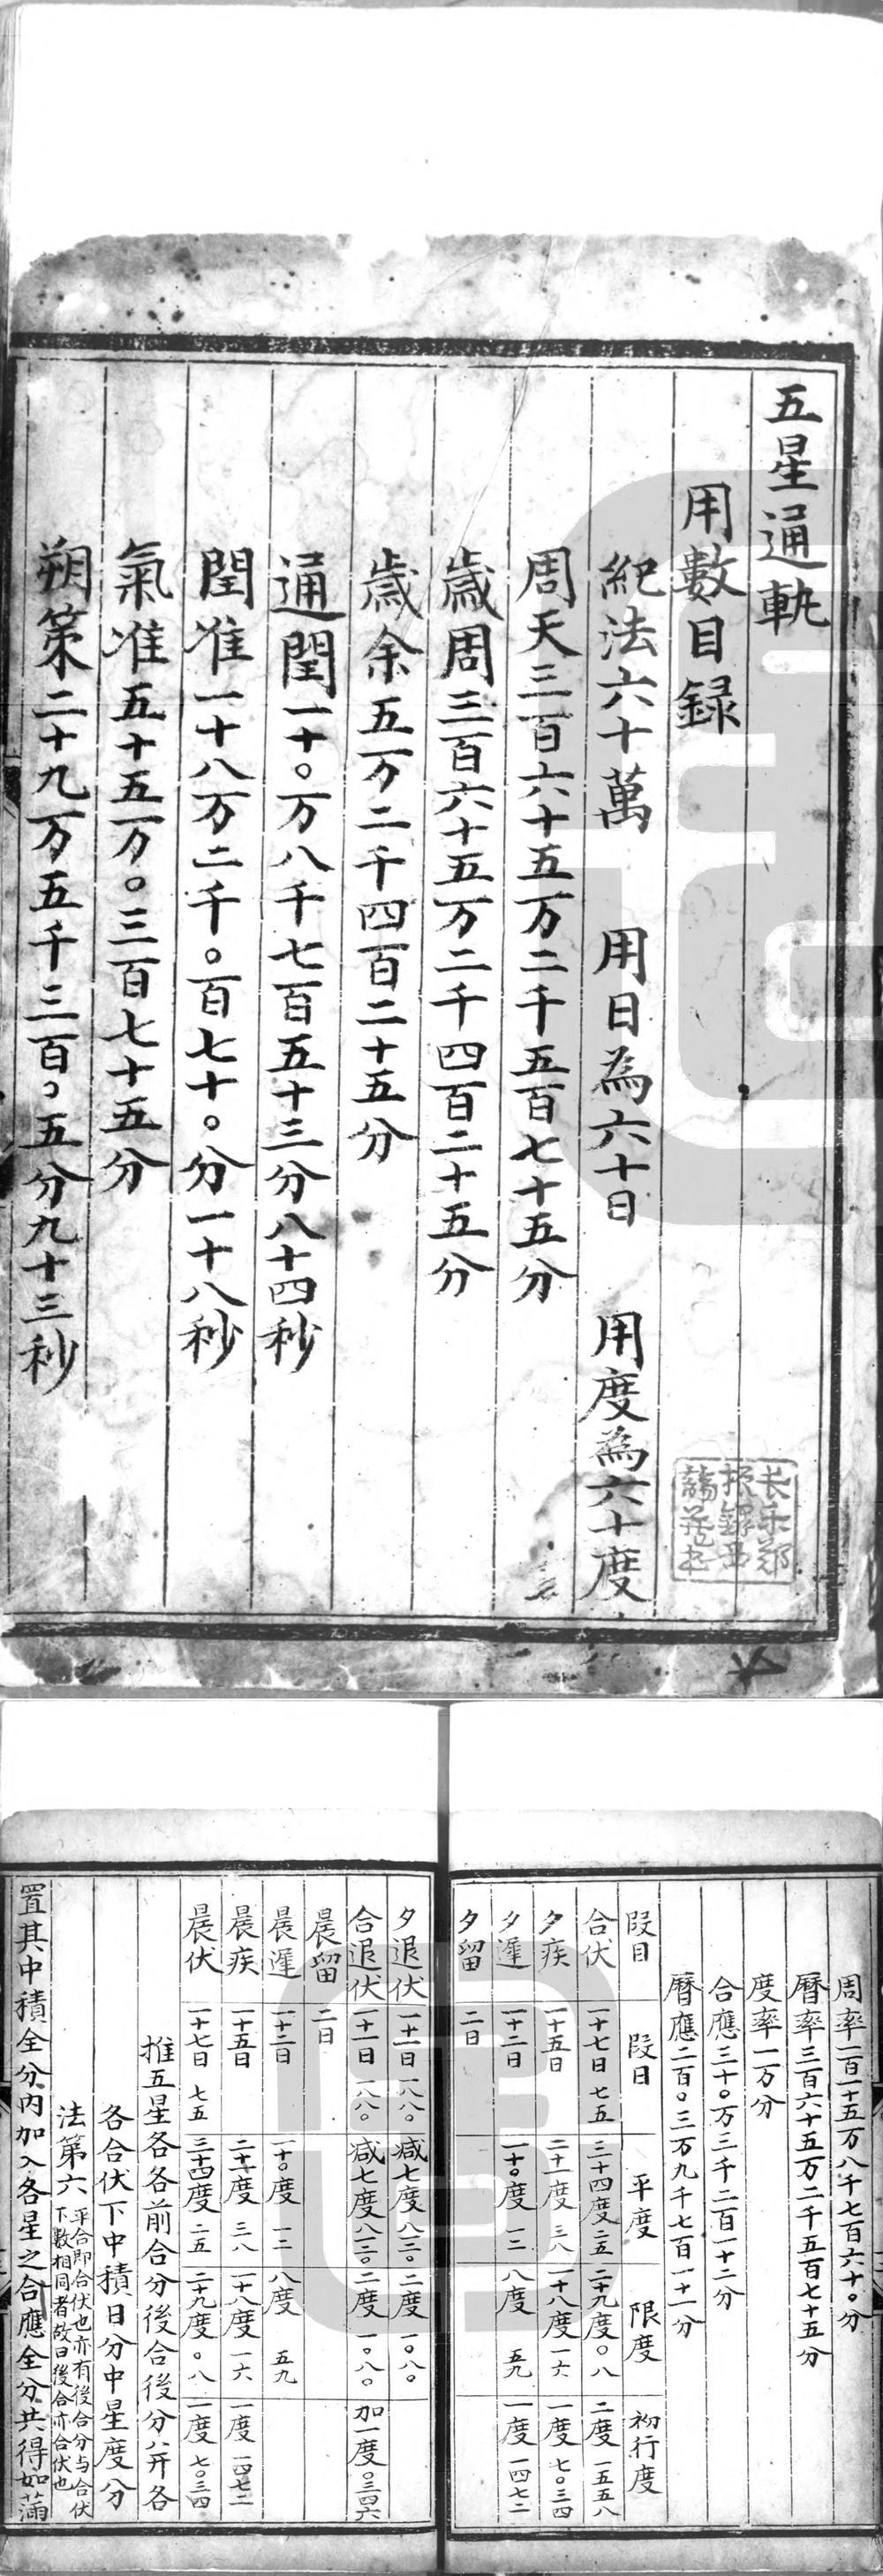 五星通軌
用數目録
紀法六十萬 用日為六十日 用度為六十度
周天三百六十五万二千五百七十五分
歲周三百六十五万二千四百二十五分
歲余五万二千四百二十五分
通閏一十〇万八千七百五十三分八十四秒
閏准一十八万二千〇百七十〇分一十八秒
氣准五十五万〇三百七十五分
朔策二十九万五千三百〇五分九十三秒
長樂鄭
振鐸西
諦藏書
周率一百一十五万八千七百六十〇分
曆率三百六十五万二千五百七十五分
度率一万分
合應三十〇万三千二百一十二分
曆應二百〇三万九千七百一十一分
段目 段日 平度 限度 初行度
合伏 一十七日 七五 三十四度 二五 二十九度 〇八 二度 一五五八
夕疾 一十五日 二十一度 三八 一十八度 一六 一度 七〇三四
夕遲 一十二日 一十〇度 一二 八度 五九 一度 一四七二
夕留 二日
夕退伏 一十一日 一八八〇 減七度 八一二〇 二度 一〇八〇
合退伏 一十一日 一八八〇 減七度 八一二〇 二度 一〇八〇 加一度 〇三四六
晨留 二日
晨遲 一十二日 一十〇度 一二 八度 五九
晨疾 一十五日 二十一度 三八 一十八度 一六 一度 一四七二
晨伏 一十七日 七五 三十四度 二五 二十九度 〇八 一度 七〇三四
推五星各各前合分後合後分并各
各合伏下中積日分中星度分
法第六 平合即合伏也亦有後合分与合伏
下數相同者故曰後合亦合伏也
置其中積全分內加入各星之合應全分共得如滿